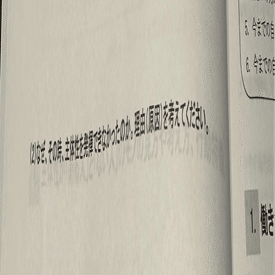 (2)なぜ、その時、主体性を発揮できなかったのか。理由(原因)を考えてください。
5. 今までの自
6. 今までの自
1. 働き